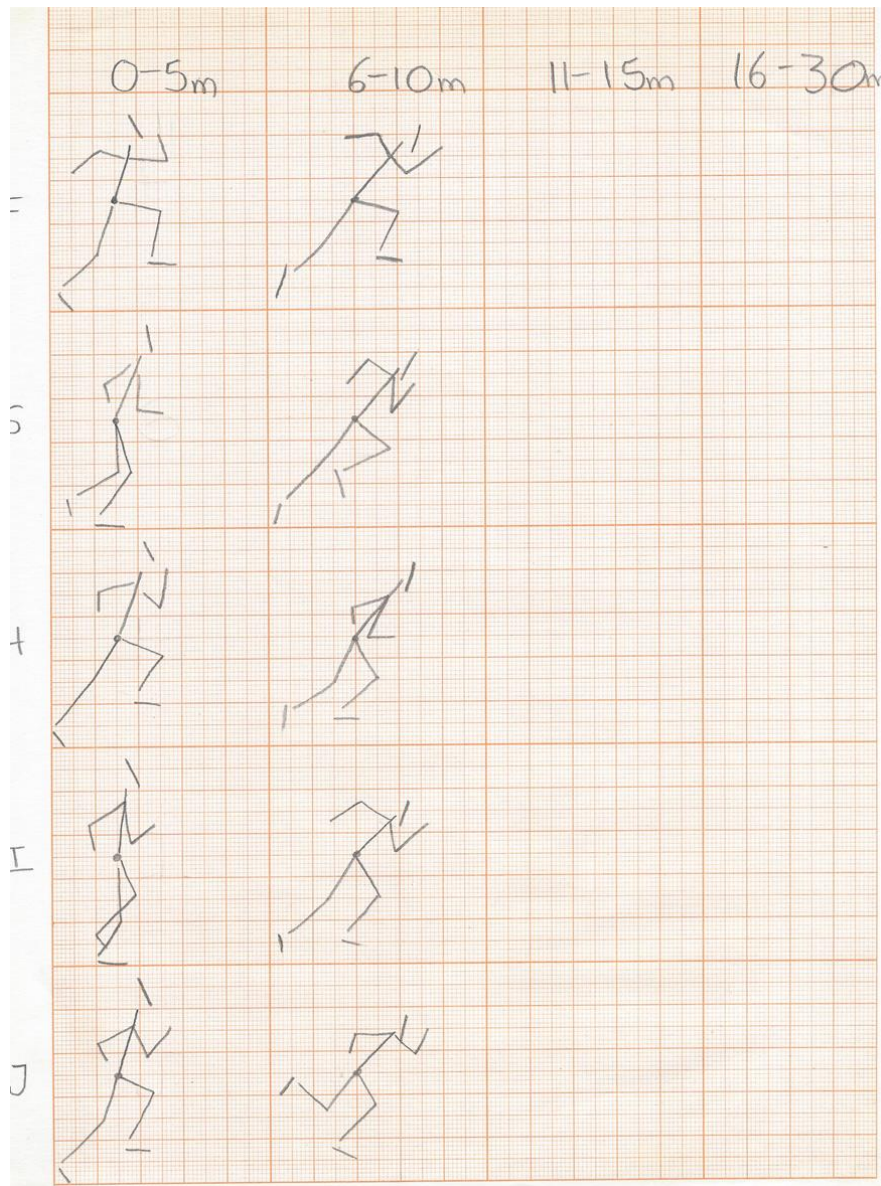 0-5m 6-10m 11-15m 16-30m
I
J